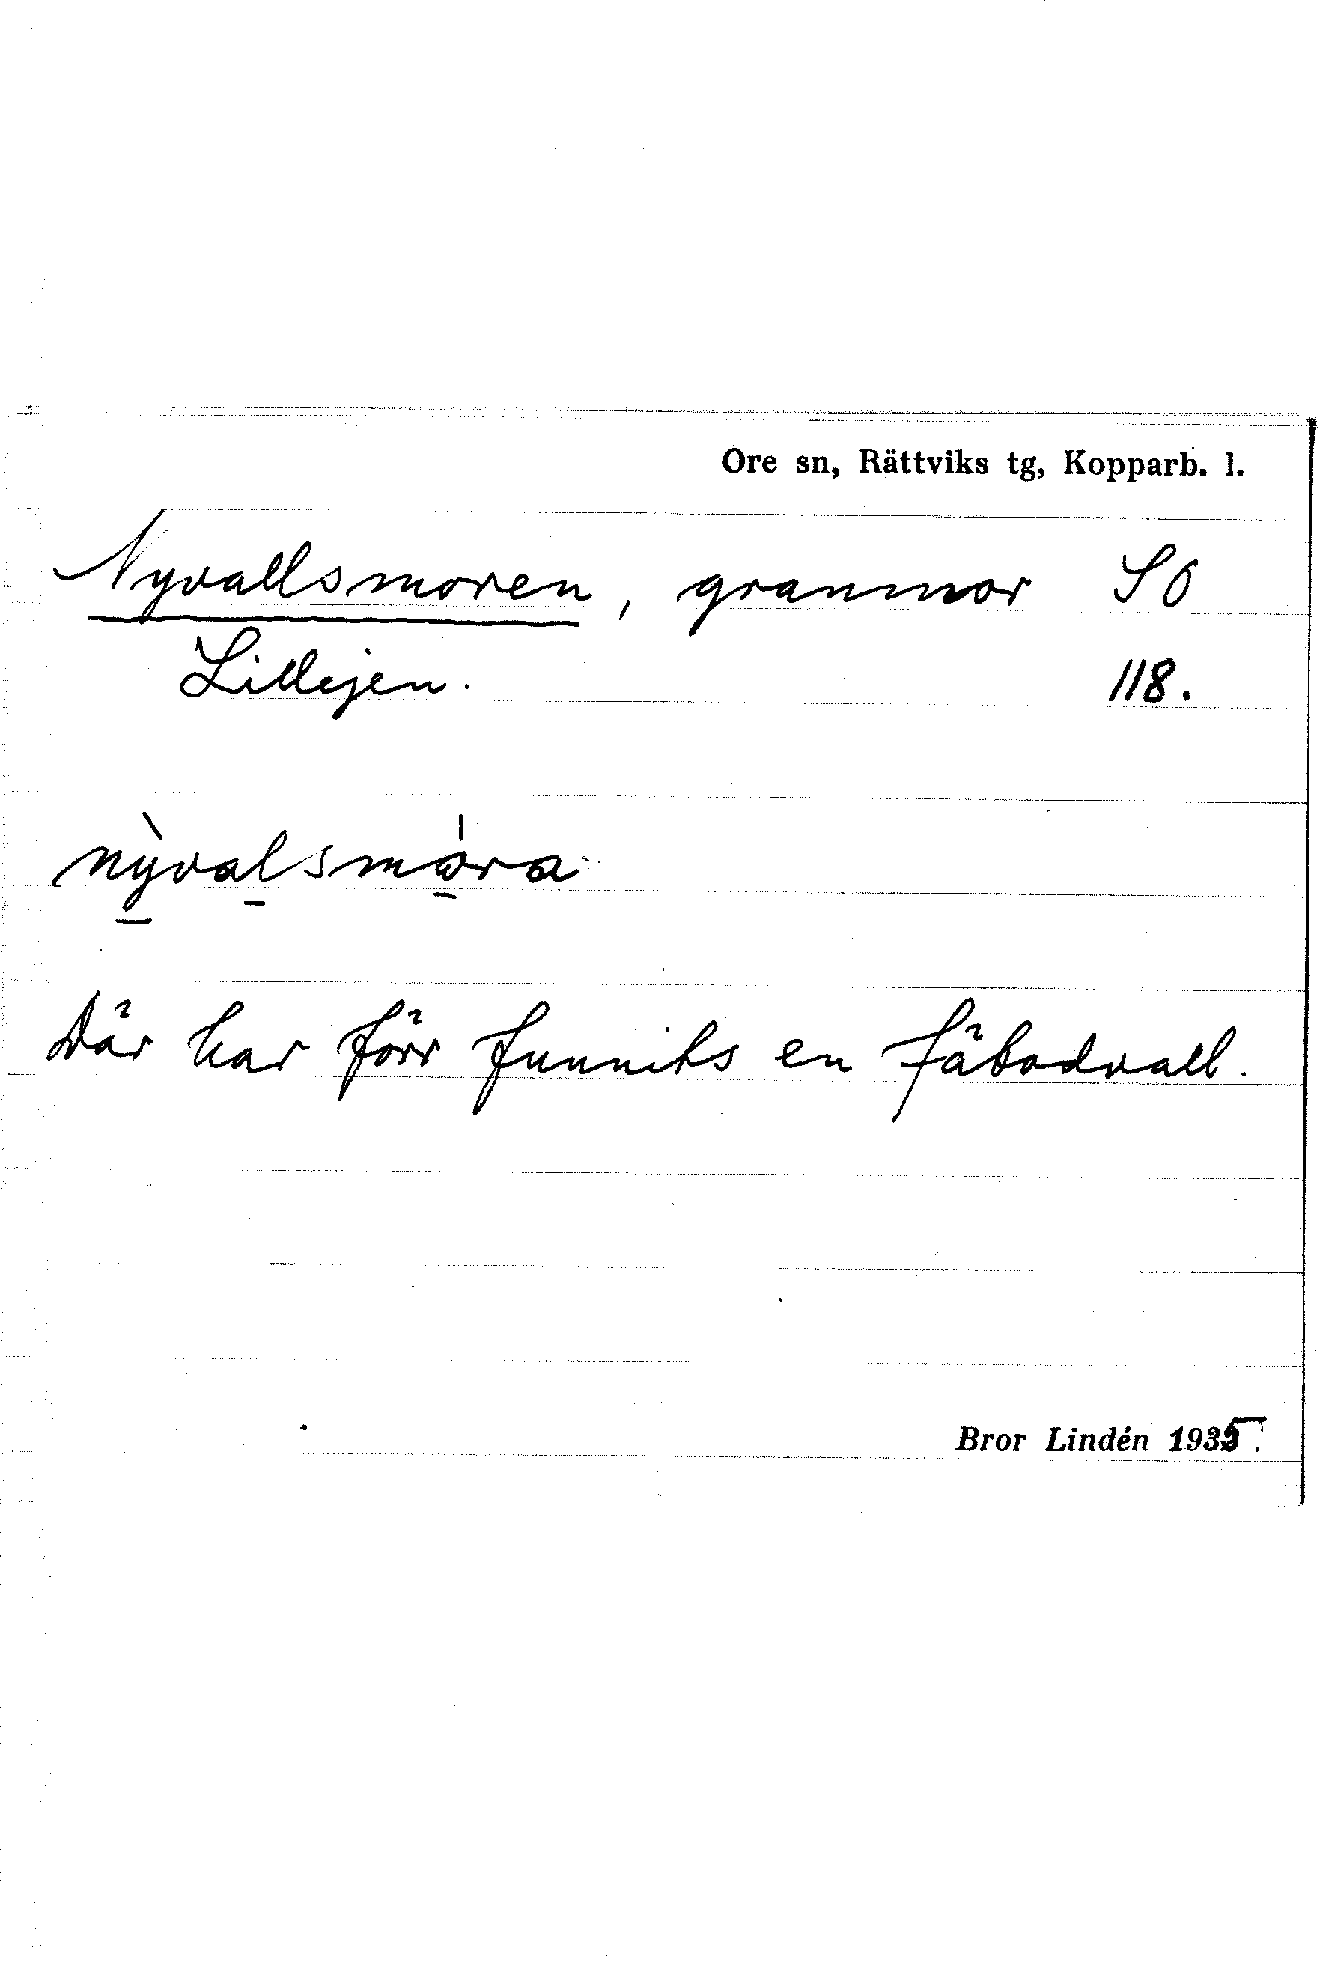 Ore sn, Rättviks tg, Kopparb. l.
Nyvallsmoren, granmor SO
Lillejen. 118.
nỳvalsmȯra
Där har förr funnits en fäbodvall.
Bror Lindén 1935.